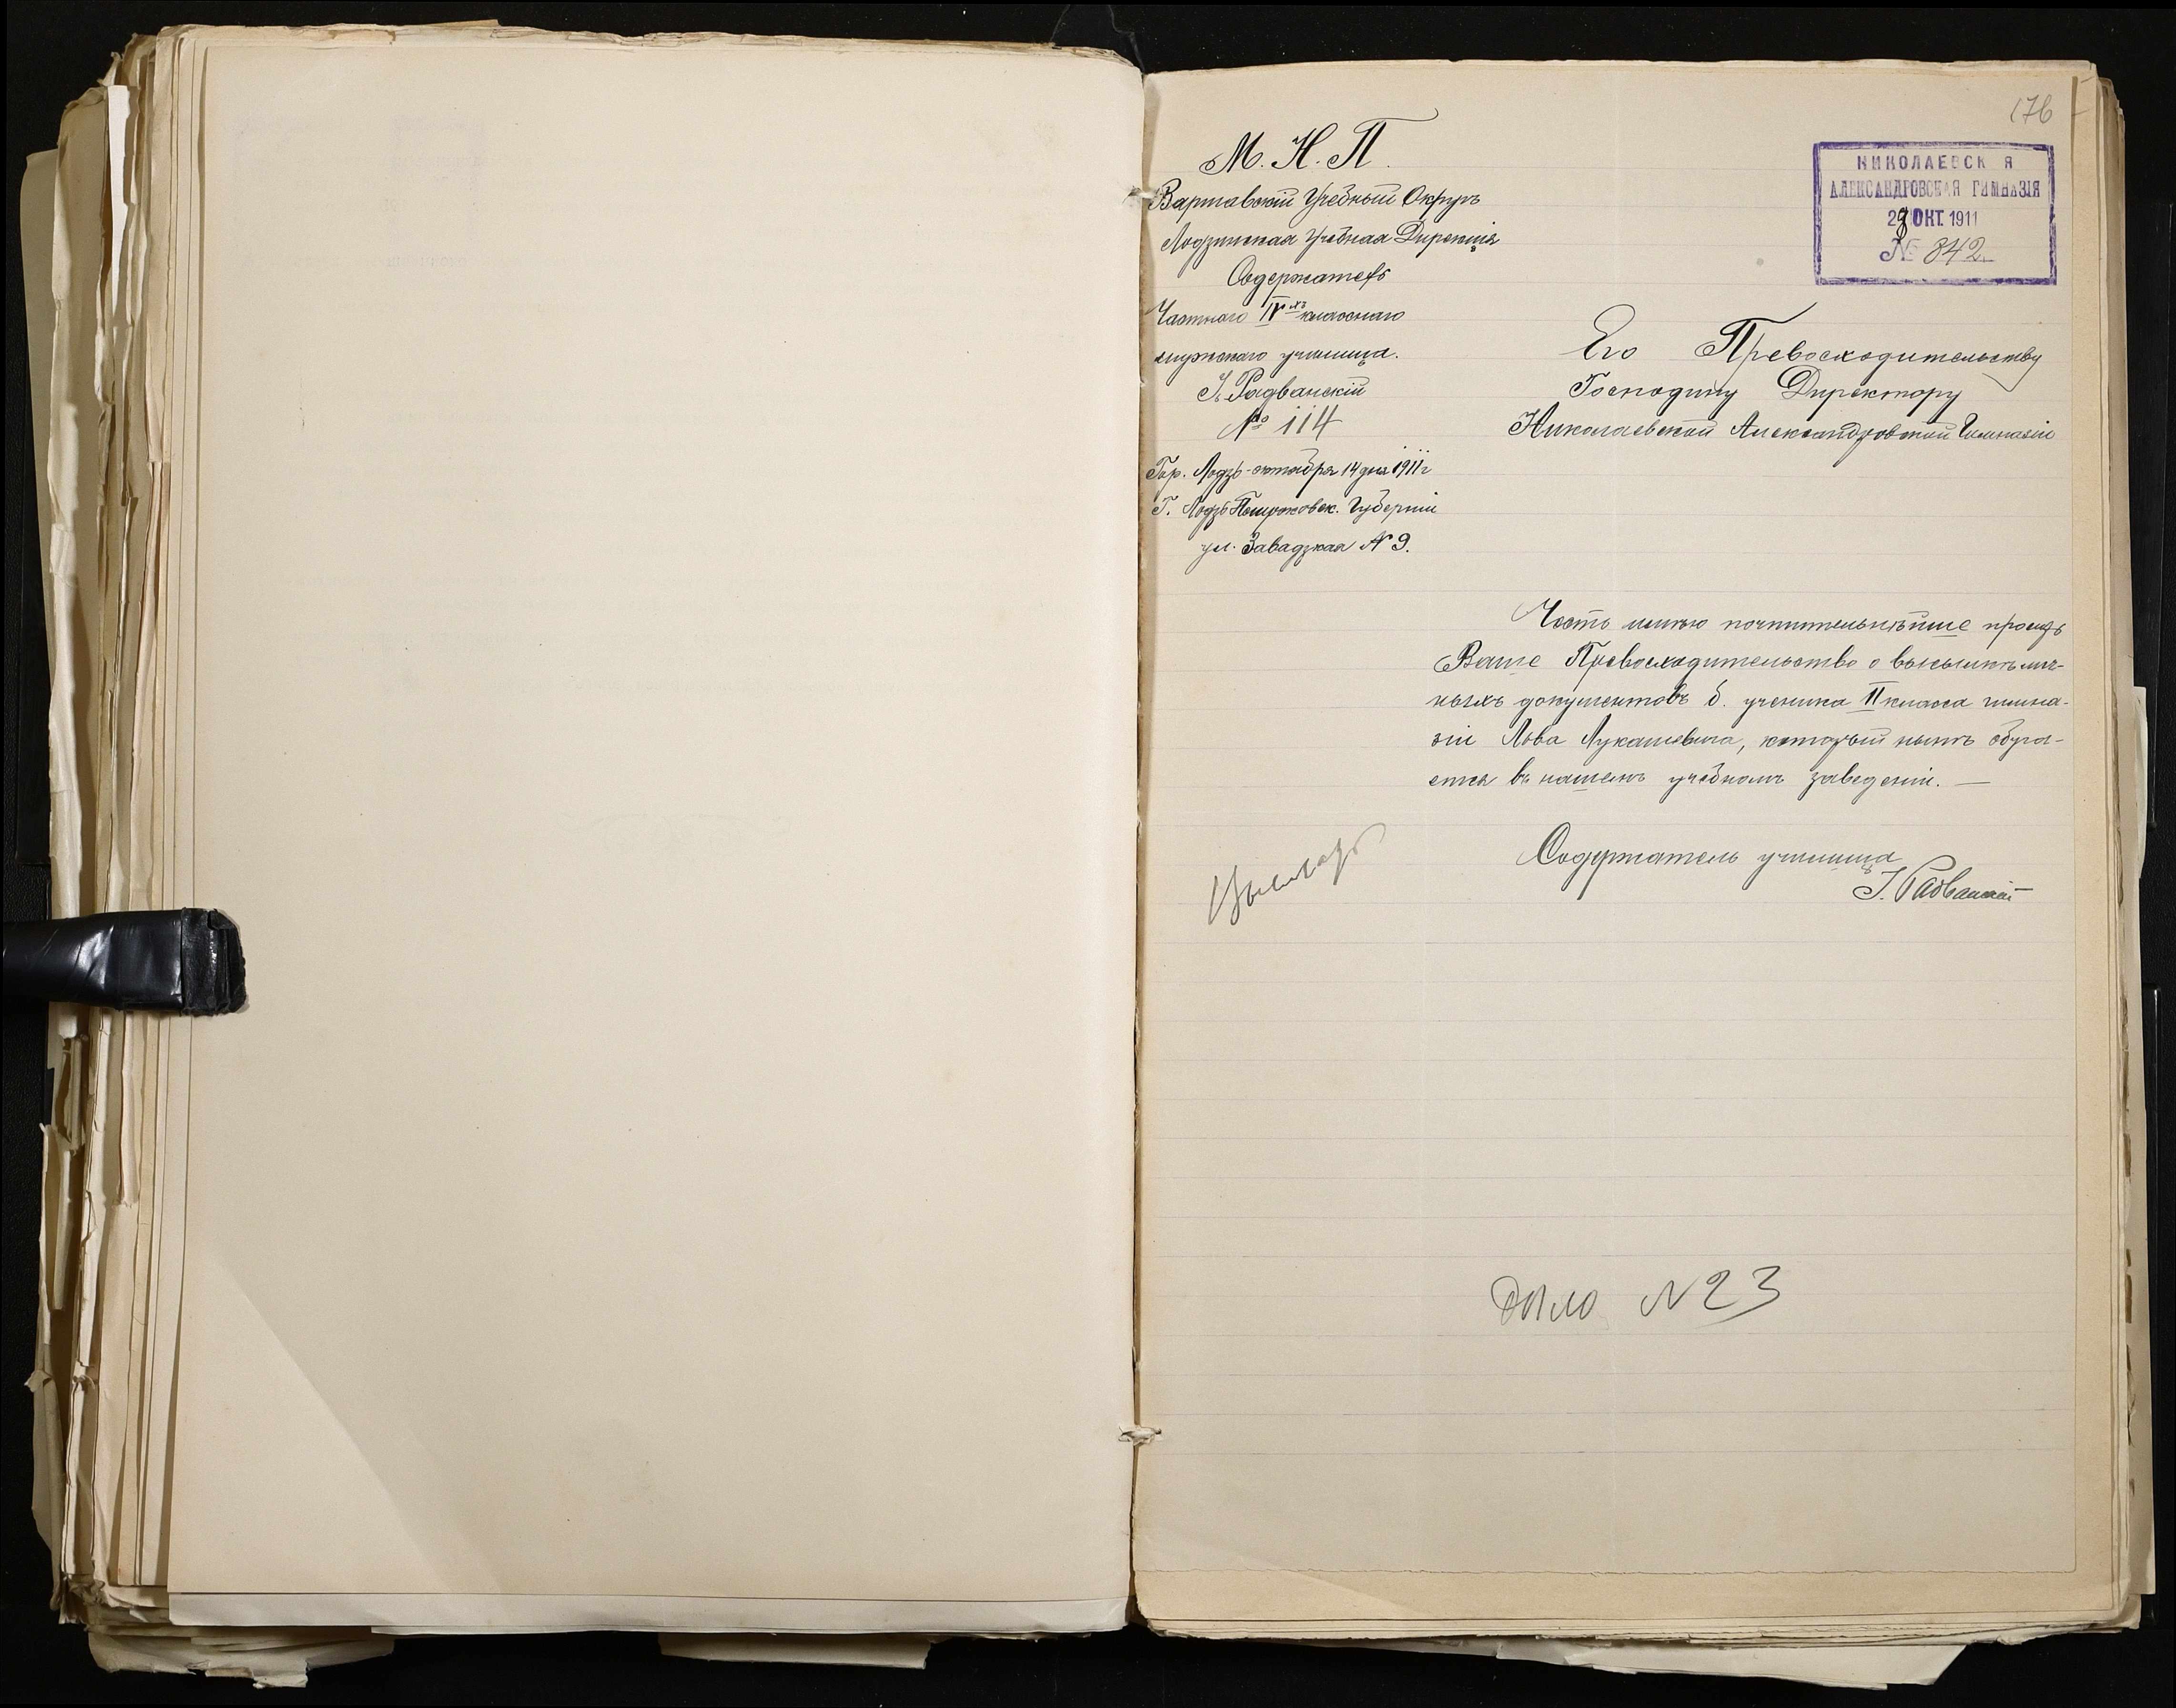 176
М. Н. П.
Варшавскій Учебный Округъ
Лодзинская Учебная Дирекція
Содержатель
Частнаго IVхъ класснаго
мужскаго училища.
І. Радванскій
№ 114
Гор. Лодзь-октября 14 дня 1911 г
Г. Лодзь Петроковск. Губерніи
ул. Завадзкая № 9.
НИКОЛАЕВСК Я
АЛЕКСАНДРОВСКАЯ ГИМНАЗІЯ
28 ОКТ. 1911
№ 842
Его Превосходительству
Господину Директору
Николаевской Александровской Гимназіи
Честь имѣю почтительнѣйше просить
Ваше Превосходительство о высылкѣ лич-
ныхъ документовъ б. ученика II класса гимна-
зіи Льва Лукашевича, который нынѣ обуча-
ется въ нашемъ учебномъ заведеніи. —
Содержатель училища
І. Радванскій
Дѣло № 23